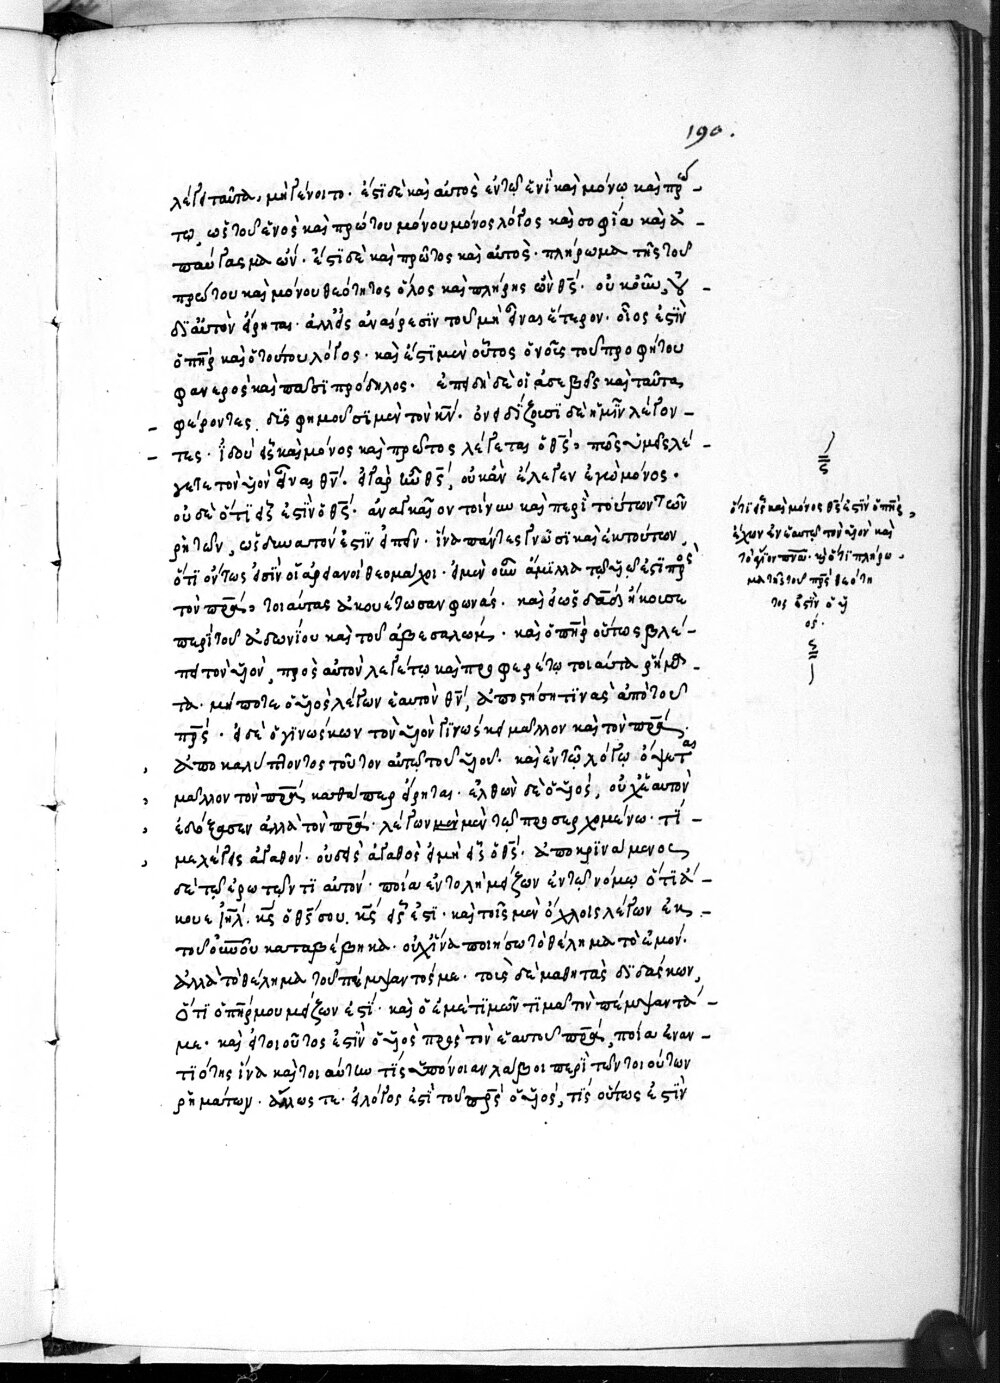 190.
λέγει ταῦτα, μὴ γένοιτο. ἔστι δὲ καὶ αὐτὸς ἐν τῷ ἑνὶ καὶ μόνῳ καὶ πρώ-
τῳ, ὡς τοῦ ἑνὸς καὶ πρώτου μόνου μόνος λόγος καὶ σοφία καὶ ἀ-
παύγασμα ὤν. ἔστι δὲ καὶ πρῶτος καὶ αὐτὸς πλήρωμα τῆς τοῦ
πρώτου καὶ μόνου θεότητος ὅλος καὶ πλήρης ὢν θς. οὐκοῦν οὐ
δι' αὐτὸν εἴρηται. ἀλλ' εἰς ἀναίρεσιν τοῦ μὴ εἶναι ἕτερον. οἷος ἐστὶν
ὁ πηρ καὶ ὁ τούτου λόγος. καὶ ἔστι μὲν οὗτος ὁ νοῦς τοῦ προφήτου
φανερὸς καὶ πᾶσι πρόδηλος. ἐπειδὴ δὲ οἱ ἀσεβεῖς καὶ ταῦτα
φέροντες, δυσφημοῦσι μὲν τὸν κν. ὀνειδίζουσι δὲ ἡμῖν λέγον-
τες. ἰδοὺ εἷς καὶ μόνος καὶ πρῶτος λέγεται ὁ θς· πῶς ὑμεῖς λέ-
γετε τὸν υἱὸν εἶναι θν. εἰ γὰρ ἦν θς, οὐκ ἂν ἔλεγεν ἐγὼ μόνος.
οὐδὲ ὅτι εἷς ἐστὶν ὁ θς. ἀναγκαῖον τοίνυν καὶ περὶ τούτων τῶν
ῥητῶν, ὡς δυνατὸν ἐστὶν εἰπεῖν. ἵνα πάντες γνῶσι καὶ ἐκ τούτων,
ὅτι ὄντως εἰσὶν οἱ ἀρειανοὶ θεομάχοι. εἰ μὲν οὖν ἅμιλλα τῷ υἱῷ ἐστὶ πρὸς
τὸν πρα, τοιαύτας ἀκουέτωσαν φωνάς. καὶ εἰ ὡς δαδ ἤκουσε
περὶ τοῦ ἀδωνίου καὶ τοῦ ἀβεσαλώμ. καὶ ὁ πηρ οὕτως βλέ-
πει τὸν υἱὸν, πρὸς αὐτὸν λεγέτω καὶ προφερέτω τοιαῦτα ῥήμα-
τα. μήποτε ὁ υἱὸς λέγων ἑαυτὸν θν, ἀποστήσῃ τινὰς ἀπὸ τοῦ
πρς. εἰ δὲ ὁ γινώσκων τὸν υἱὸν γινώσκει μᾶλλον καὶ τὸν πρα.
ἀποκαλύπτοντος τοῦτον αὐτῷ τοῦ υἱοῦ. καὶ ἐν τῷ λόγῳ ὄψεται
μᾶλλον τὸν πρα καθάπερ εἴρηται. ἐλθὼν δὲ ὁ υἱὸς, οὐχ ἑαυτὸν
ἐδόξασεν ἀλλὰ τὸν πρα. λέγων μὲν τῷ προσερχομένῳ. τί
με λέγεις ἀγαθόν. οὐδεὶς ἀγαθὸς εἰ μὴ εἷς ὁ θς. ἀποκρινάμενος
δὲ τῷ ἐρωτῶντι αὐτόν. ποία ἐντολὴ μείζων ἐν τῷ νόμῳ ὅτι ἄ-
κουε ιηλ. κς ὁ θς σου κς εἷς ἐστι. καὶ τοῖς μὲν ὄχλοις λέγων ἐκ
τοῦ οὐνου καταβέβηκα. οὐχ ἵνα ποιήσω τὸ θέλημα τὸ ἐμόν.
ἀλλὰ τὸ θέλημα τοῦ πέμψαντός με. τοὺς δὲ μαθητὰς διδάσκων,
ὅτι ὁ πηρ μου μείζων ἐστί. καὶ ὁ ἐμὲ τιμῶν τιμᾷ τὸν πέμψαντά
με. καὶ εἰ τοιοῦτος ἐστὶν ὁ υἱὸς πρὸς τὸν ἑαυτοῦ πρα, ποία ἐναν-
τιότης ἵνα καὶ τοιαύτην τίς ὑπόνοιαν λάβοι περὶ τῶν τοιούτων
ῥημάτων. ἄλλως τε. εἰ λόγος ἐστὶ τοῦ πρς ὁ υἱὸς, τίς οὕτως ἐστὶν
ὅτι εἷς καὶ μόνος θς ἐστὶν ὁ πηρ,
ἔχων ἐν ἑαυτῷ τὸν υἱὸν καὶ
τὸ ἅγιον πνα. καὶ ὅτι πλήρω-
μα τῆς τοῦ πρς θεότη
τος ἐστὶν ὁ υἱ
ός.